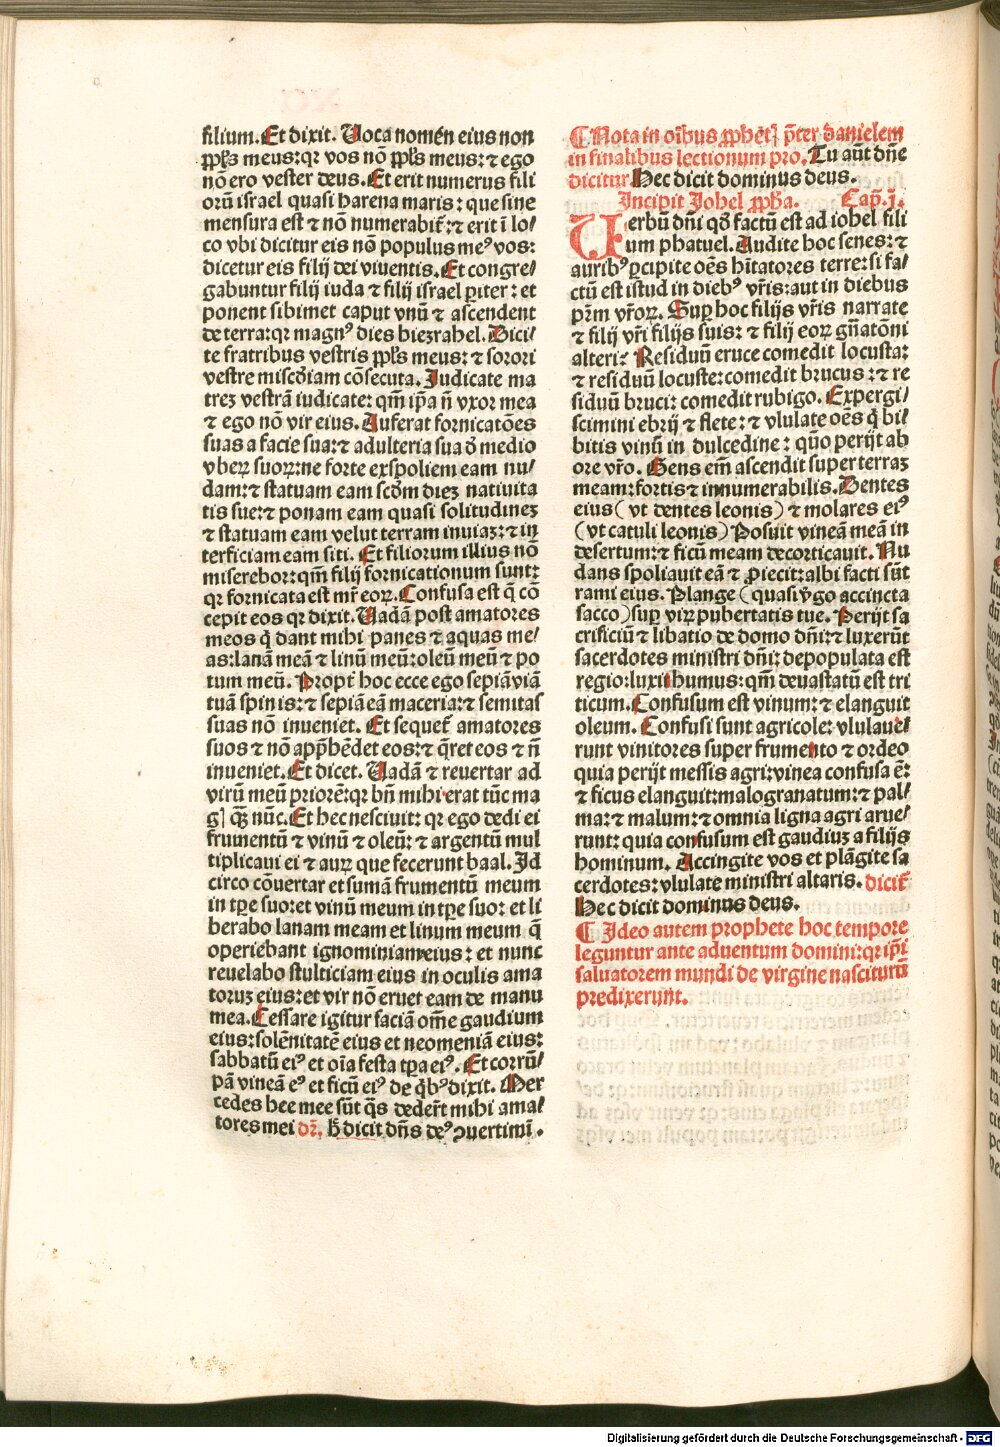 filium. Et dixit. Uoca nomen eius non
ꝓpl̄s meus: qꝛ vos nō ꝓpl̄s meus: ⁊ ego
nō ero vester deus. Et erit numerus fili
orū israel quasi harena maris: que sine
mensura est ⁊ nō numerabit̄: ⁊ erit ī lo⸗
co vbi dicitur eis nō populus meꝰ vos:
dicetur eis filij dei viuentis. Et congre⸗
gabuntur filij iuda ⁊ filij israel ꝑiter: et
ponent sibimet caput vnū ⁊ ascendent
de terra: qꝛ magnꝰ dies hiezrahel. Dici⸗
te fratribus vestris ꝓpl̄s meus: ⁊ sorori
vestre misc̄diam cōsecuta. Iudicate ma
treꝫ vestrā iudicate: qm̄ ip̄a n̄ vxor mea
⁊ ego nō vir eius. Auferat fornicatōes
suas a facie sua: ⁊ adulteria sua d̄ medio
vbeꝝ suoꝝ: ne forte exspoliem eam nu⸗
dam: ⁊ statuam eam scd̄m dieꝫ natiuita
tis sue: ⁊ ponam eam quasi solitudineꝫ
⁊ statuam eam velut terram inuiaꝫ: ⁊ in
terficiam eam siti. Et filiorum illius nō
miserebor: qm̄ filij fornicationum sunt:
qꝛ fornicata est mr̄ eoꝝ. Confusa est q̄ cō
cepit eos qꝛ dixit. Uadā post amatores
meos q̇ dant mihi panes ⁊ aquas me⸗
as: lanā meā ⁊ linū meū: oleū meū ⁊ po
tum meū. Propt̄ hoc ecce ego sepiā viā
tuā spinis: ⁊ sepiā eā maceria: ⁊ semitas
suas nō inueniet. Et sequet̄ amatores
suos ⁊ nō app̄hēdet eos: ⁊ q̄ret eos ⁊ n̄
inueniet. Et dicet. Uadā ⁊ reuertar ad
virū meū priorē: qꝛ bn̄ mihi erat tūc ma
gꝭ q̄ꝫ nūc. Et hec nesciuit: qꝛ ego dedi ei
frumentū ⁊ vinū ⁊ oleū: ⁊ argentū mul
tiplicaui ei ⁊ auꝝ que fecerunt baal. Id
circo cōuertar et sumā frumentū meum
in tp̄e suo: et vinū meum in tp̄e suo: et li
berabo lanam meam et linum meum q̄
operiebant ignominiam eius: et nunc
reuelabo stulticiam eius in oculis ama
toruꝫ eius: et vir nō eruet eam de manu
mea. Cessare igitur faciā om̄e gaudium
eius: solēnitatē eius et neomeniā eius:
sabbatū eiꝰ et oīa festa tp̄a eiꝰ. Et corrū⸗
pā vineā eꝰ et ficū eiꝰ de q̇bꝰ dixit. Mer
cedes hee mee sūt q̄s dedert̄ mihi ama⸗
tores mei dꝛ̄. H̄ dicit dn̄s deꝰ ꝯuertimī.
¶ Nota in oībus ꝓphetꝭ p̄ter danielem
in finalibus lectionum pro. Tu aūt dn̄e
dicitur Hec dicit dominus deus.
Incipit Johel ꝓpha. Cap̄. 1.
Uerbū dn̄i qd̄ factū est ad iohel fili
um phatuel. Audite hoc senes: ⁊
auribꝰ ꝑcipite oēs hītatores terre: si fa⸗
ctū est istud in diebꝰ vr̄is: aut in diebus
pr̄m vr̄oꝝ. Suꝑ hoc filijs vr̄is narrate
⁊ filij vr̄i filijs suis: ⁊ filij eoꝝ gn̄atōni
alteri: Residuū eruce comedit locusta:
⁊ residuū locuste: comedit brucus: ⁊ re
siduū bruci: comedit rubigo. Expergi⸗
scimini ebrij ⁊ flete: ⁊ vlulate oēs q̇ bi⸗
bitis vinū in dulcedine: qm̄o perijt ab
ore vr̄o. Gens em̄ ascendit super terraꝫ
meam: fortis ⁊ innumerabilis. Dentes
eius (vt dentes leonis) ⁊ molares eiꝰ
(vt catuli leonis) Posuit vineā meā in
desertum: ⁊ ficū meam decorticauit. Nu
dans spoliauit eā ⁊ ꝓiecit: albi facti sūt
rami eius. Plange (quasi v̇go accincta
sacco) suꝑ viꝝ pubertatis tue. Perijt sa
crificiū ⁊ libatio de domo dn̄i: ⁊ luxerūt
sacerdotes ministri dn̄i: depopulata est
regio: luxit humus: qm̄ deuastatū est tri
ticum. Confusum est vinum: ⁊ elanguit
oleum. Confusi sunt agricole: vlulaue⸗
runt vinitores super frumento ⁊ ordeo
quia perijt messis agri: vinea confusa ē:
⁊ ficus elanguit: malogranatum: ⁊ pal⸗
ma: ⁊ malum: ⁊ omnia ligna agri arue⸗
runt: quia confusum est gaudiuꝫ a filijs
hominum. Accingite vos et plāgite sa
cerdotes: vlulate ministri altaris. dicit̄
Hec dicit dominus deus.
¶ Ideo autem prophete hoc tempore
leguntur ante aduentum domini: qꝛ ip̄i
saluatorem mundi de virgine nasciturū
predixerunt.
Digitalisierung gefördert durch die Deutsche Forschungsgemeinschaft - DFG